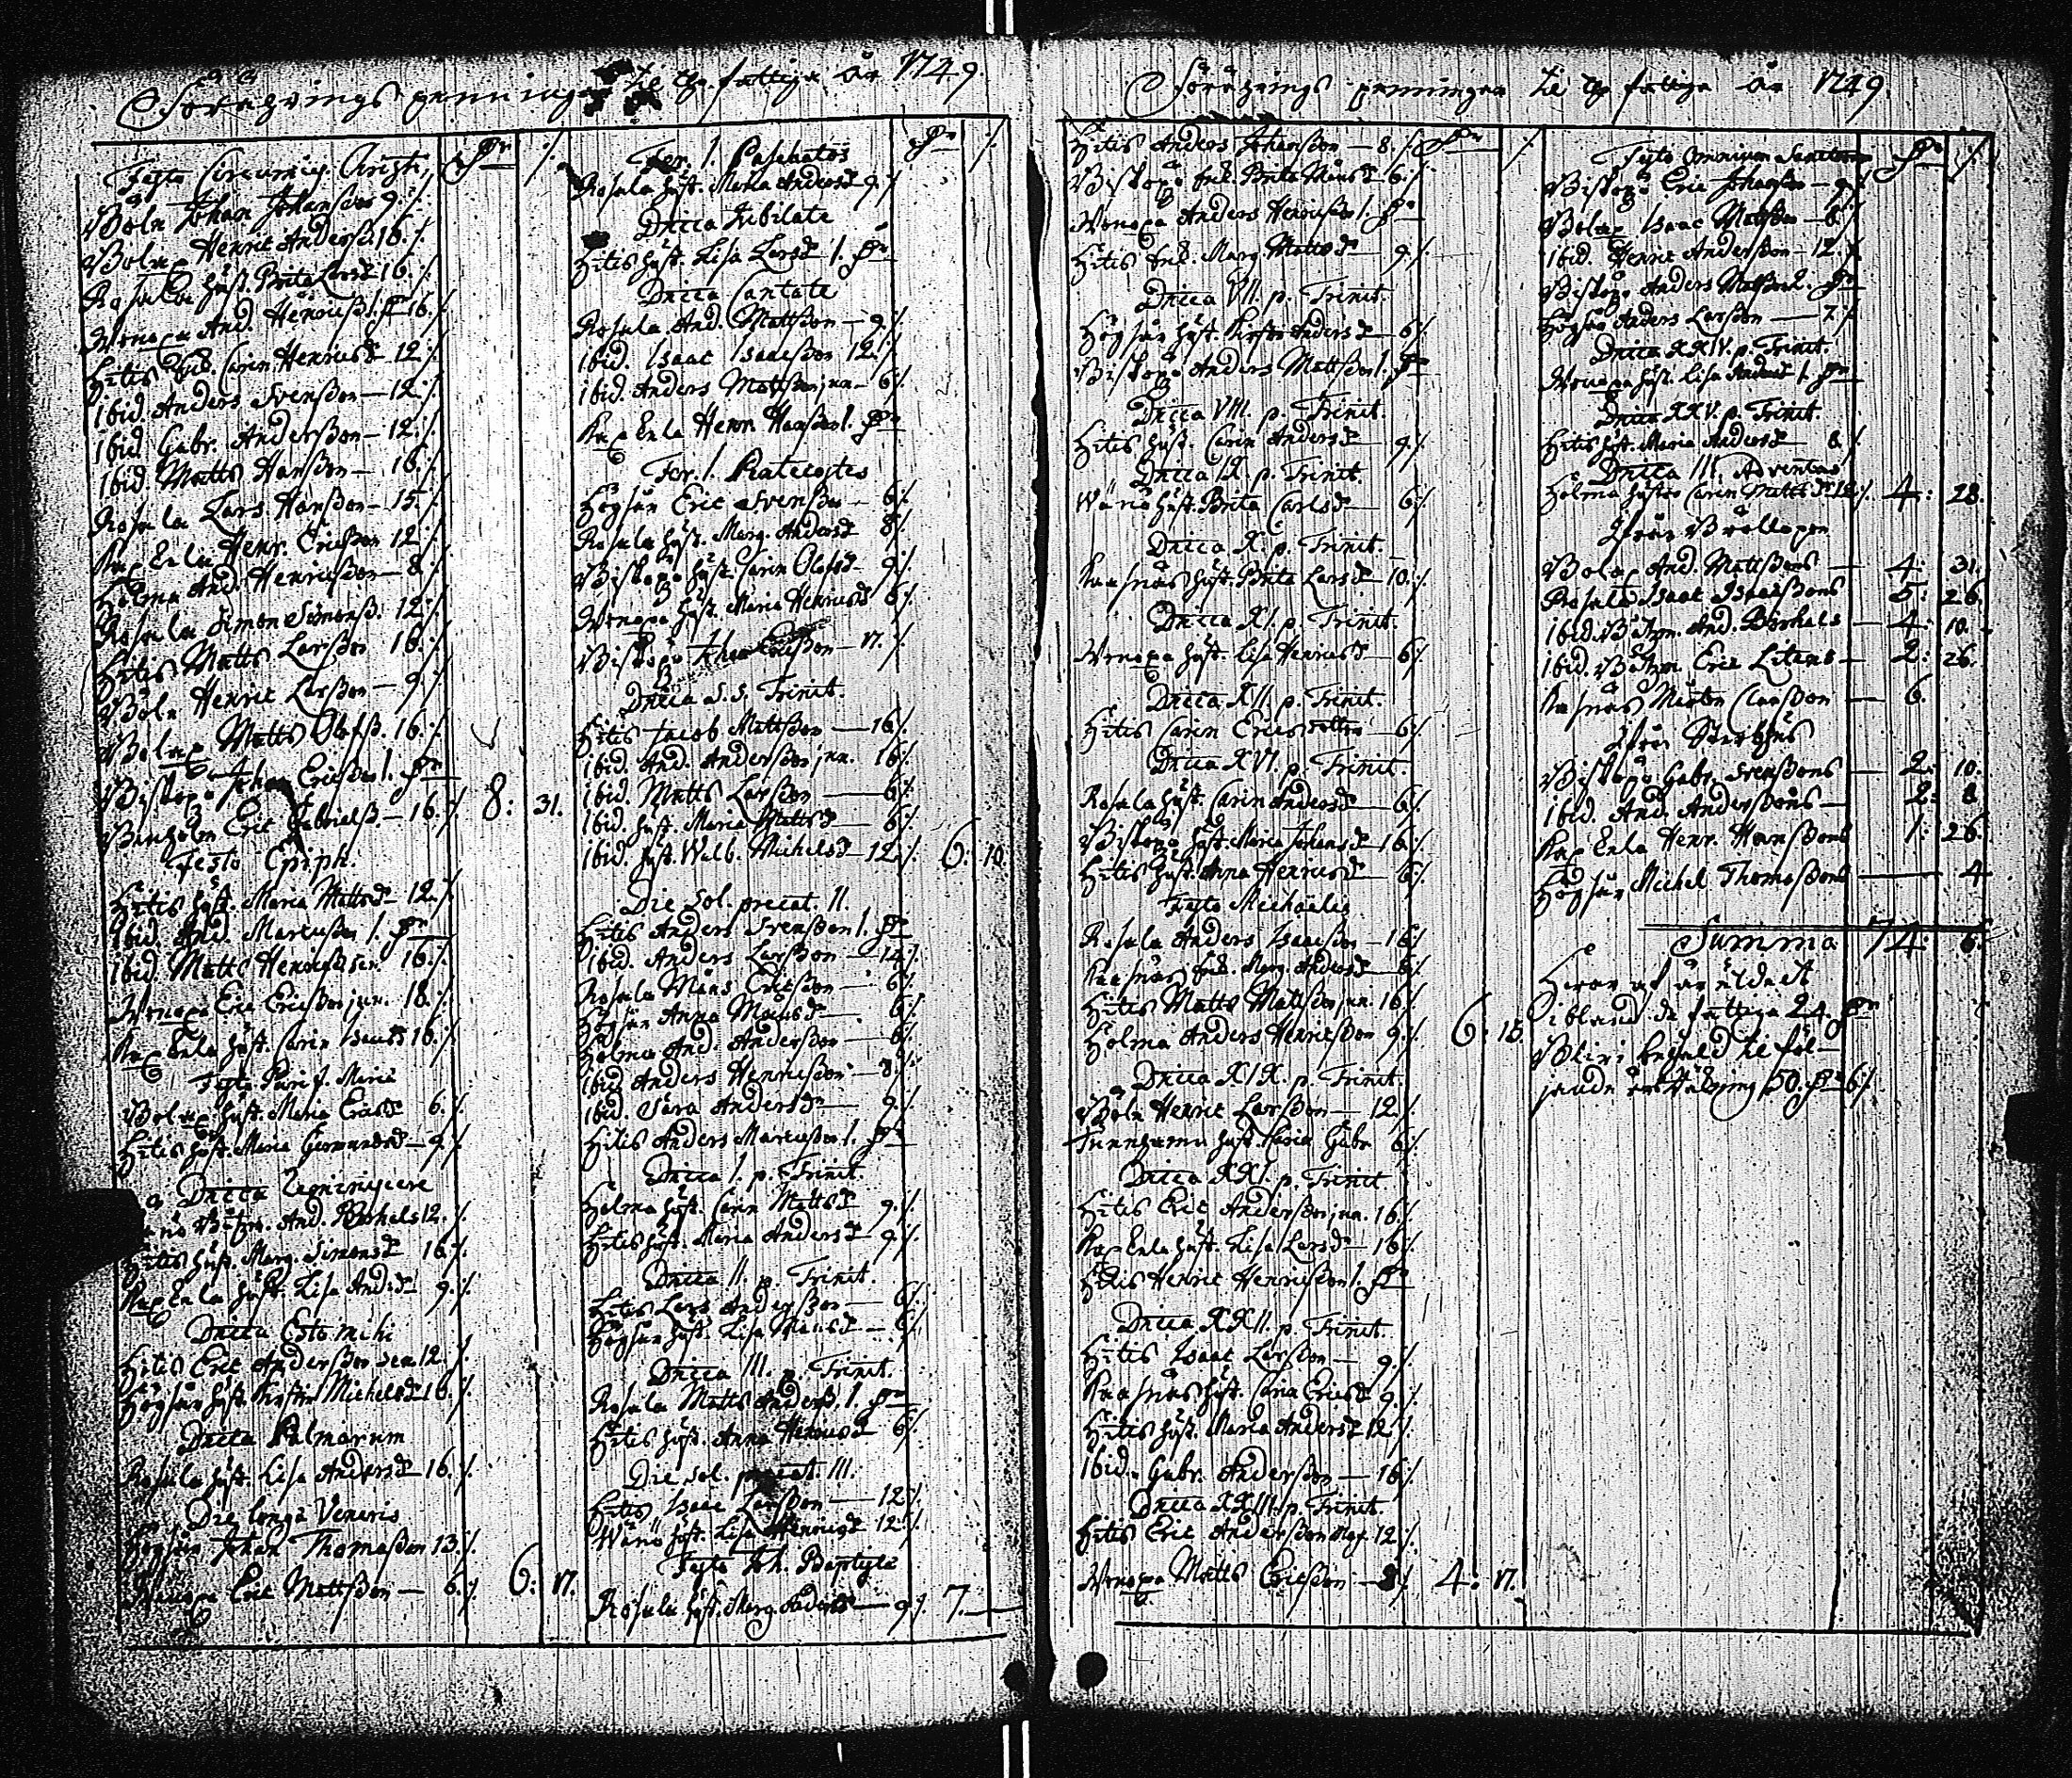 Förährings penningar til the fattiga år 1749.
Festo Circumcis. Christi
Böle Johan Johansson 9.
Bolax Henric Anderss. 16.
Rosala hust. Brita Larsd. 16.
Wenoxa And. Henricss. 1. 16.
Hitis Carin Henricsd. 12.
Ibid. Anders Svensson — 12.
Ibid. Gabr. Andersson — 12.
Ibid. Matts Hansson — 16.
Rosala Lars Hansson — 15.
Kaxskala Henr. Ericsson 12
Holma And. Henricsson — 8.
Rosala Simon Simonss. 12.
Hitis Matts Larsson 16.
Böle Henric Larsson — 9.
Bolax Matts Olofss. 16.
Biskopsö Johan Ericsson 1.
Eric Gabrielss. — 16. 8: 31.
Festo Epiph.
Hitis hust. Maria Mattsd. 12.
Ibid. And. Marcusson 1.
Ibid. Matts Henricss. sen. 16.
Wenoxa Eric Ericsson jun. 18.
hust. Carin Isaacsd. 16.
Festo Purif. Mariæ
Bolax hust. Maria Ericsd. 6.
Hitis hust. Maria — 9.
Dnica
Båtzm. And. 12.
Hitis hust. Marg. Simonsd. 16.
hust. Lisa And.d. 9.
Dnica Esto mihi
Hitis Eric Andersson sen. 12.
Högsar hust. Kirstin Michelsd. 16.
Dnica Palmarum
Rosala hust. Lisa Andersd. 16.
Die longæ Veneris
Högsar Johan Thomasson 13.
Wenoxa Eric Mattsson — 6. 6: 17.
Fer. 1. Paschatos
Rosala hust. Maria Andersd. 9.
Dnica Jubilate
Hitis hust. Lisa Larsd. 1.
Dnica Cantate
Rosala And. Mattsson — 9.
Ibid. Isaac Isaacsson 12.
Ibid. Anders Mattsson jun. — 6.
Henr. Hansson 1.
Fer. 1. Pentecostes
Högsar Eric Svensson — 6.
Rosala hust. Marg. Andersd. 8.
Biskopsö hust. Carin Olofsd. — 9.
Wenoxa hust. Maria Henricsd. 6.
Biskopsö Johan Ericsson — 17.
Dnica S. S. Trinit.
Hitis Jacob Mattsson — 16.
Ibid. And. Andersson jun. 16.
Ibid. Matts Larsson — 6.
Ibid. hust. Maria Mattsd. — 6.
Ibid. hust. Walb. Michelsd. — 12. 6: 10.
Die Sol. precat. II.
Hitis Anders Svensson 1.
Ibid. Anders Larsson — 14.
Rosala Måns Ericsson — 6.
Högsar Anna Månsd. — 6.
Holma And. Andersson — 6.
Ibid. Anders Henricsson — 8.
Ibid. Sara Andersd. — 9.
Hitis Anders Marcusson 1.
Dnica I. p. Trinit.
Holma hust. Carin Mattsd. 9.
Hitis hust. Maria Andersd. 9.
Dnica II. p. Trinit.
Hitis Lars Andersson — 6.
Högsar hust. Lisa Månsd. — 6.
Dnica III. p. Trinit.
Rosala Matts Anderss. 1.
Hitis hust. Anna Henricsd. 6.
Die Sol. precat. III.
Hitis Isaac Larsson — 12.
Wänö hust. Lisa Henricsd. 12.
Festo Joh. Baptistæ
Rosala hust. Marg. Andersd. — 9. 7. —
Förährings penningar til the fattiga år 1749
Hitis Anders Johansson — 8.
Biskopsö Brita Månsd. 6.
Wenoxa Anders Henricsson 1.
Hitis Marg. Mattsd. — 9.
Dnica VII. p. Trinit.
Högsar hust. Kirstin Andersd. — 6.
Biskopsö Anders Mattsson 1.
Dnica VIII. p. Trinit.
Hitis hust. Carin Andersd. — 9.
Dnica IX. p. Trinit.
Wänö hust. Brita Carlsd. — 6.
Dnica X. p. Trinit.
Kasnäs hust. Brita Larsd. — 10.
Dnica XI. p. Trinit.
Wenoxa hust. Lisa Henricsd. — 6.
Dnica XII. p. Trinit.
Hitis Carin Ericsdotter — 6.
Dnica XVI. p. Trinit.
Rosala hust. Carin Andersd. — 6.
Biskopsö hust. Maria Johansd. 16.
Hitis hust. Anna Henricsd. — 6.
Festo Michaelis
Rosala Anders Isaacsson — 16.
Kasnäs Marg. Andersd. — 6.
Hitis Matts Mattsson jun. 16.
Holma Anders Henricsson 9. 6: 15.
Dnica XIX. p. Trinit.
Böle Henric Larsson — 12.
hust. Maria Gabr. 6.
Dnica XXI. p. Trinit.
Hitis Eric Andersson jun. 16.
hust. Lisa Larsd. — 16.
Hitis Henric Henricsson 1.
Dnica XXII. p. Trinit.
Hitis Isaac Larsson — 9.
Kasnäs hust. Caria Ericsd. 9.
Hitis hust. Maria Andersd. 12.
Ibid. Gabr. Andersson — 16.
Dnica XXIII. p. Trinit.
Hitis Eric Andersson 12.
Wenoxa Matts Ericsson — 8. 4: 17.
Festo Omnium Sanctorum
Biskopsö Eric Johansson — 9.
Bolax Isaac Mattsson — 6.
Ibid. Henric Andersson — 12.
Biskopsö Anders Mattsson 2.
Högsar Anders Larsson — 7.
Dnica XXIV. p. Trinit.
Wenoxa hust. Lisa Andersd. 1.
Dnica XXV. p. Trinit.
Hitis hust. Maria Andersd. 8.
Dnica III. Adventus
Holma hustro Carin Mattsd. 12. 4: 28.
Ifrån Bröllopen
Bolax And. Mattssons — 4: 31.
Rosala Isaac Isaacssons 5: 26.
Ibid. Båtzm. And. — 4: 10.
Ibid. Båtzm. Eric Litens — 2: 26.
Kasnäs Mårten Clarsson — 6.
Ifrån Stärbhus
Biskopsö Gabr. Svenssons — 2: 10.
Ibid. And. Anderssons — 2: 8.
Henr. Hanssons 1: 26.
Högsar Michel Thomassons — 4
Summa 74: 6.
Häraf är utdelt
ibland de fattiga 24.
Blir behåld til föl-
jande 50. 6.